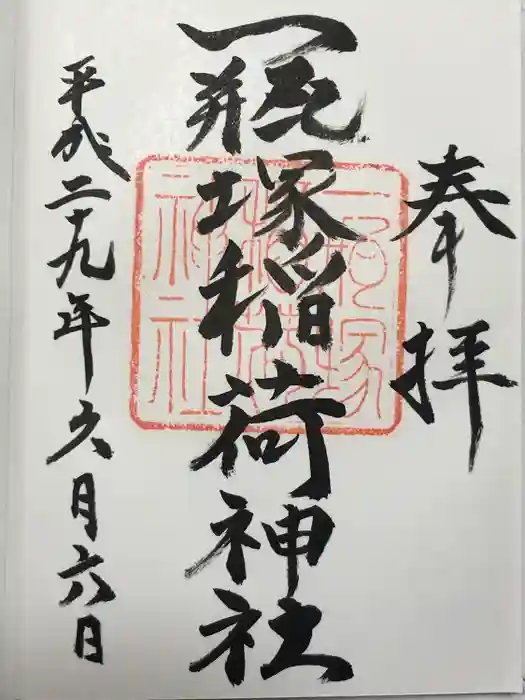 奉拝
一瓶塚稲荷神社
平成二十九年久月六日
一瓶塚
稲荷
神社